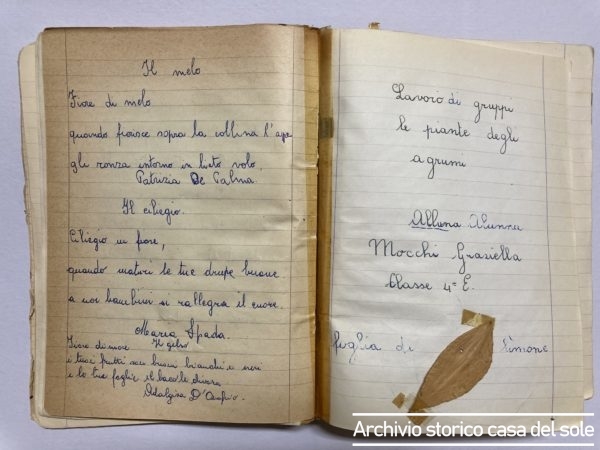 Il melo
Fiore di melo
quando fiorisce sopra la collina l'ape
gli ronza intorno in lieto volo.
Patrizia De Palma.
Il ciliegio.
Ciliegio in fiore,
quando maturi le tue drupe buone
a noi bambini si rallegra il cuore.
Maria Spada.
Il gelso
Fiore di more
i tuoi frutti son buoni bianchi e neri
e le tue foglie il baco le divora
Adalgisa
Lavoro di gruppi
le piante degli
agrumi
Alluna Alunna
Mocchi Graziella
Classe 4ª E.
foglia di limone
Archivio storico casa del sole